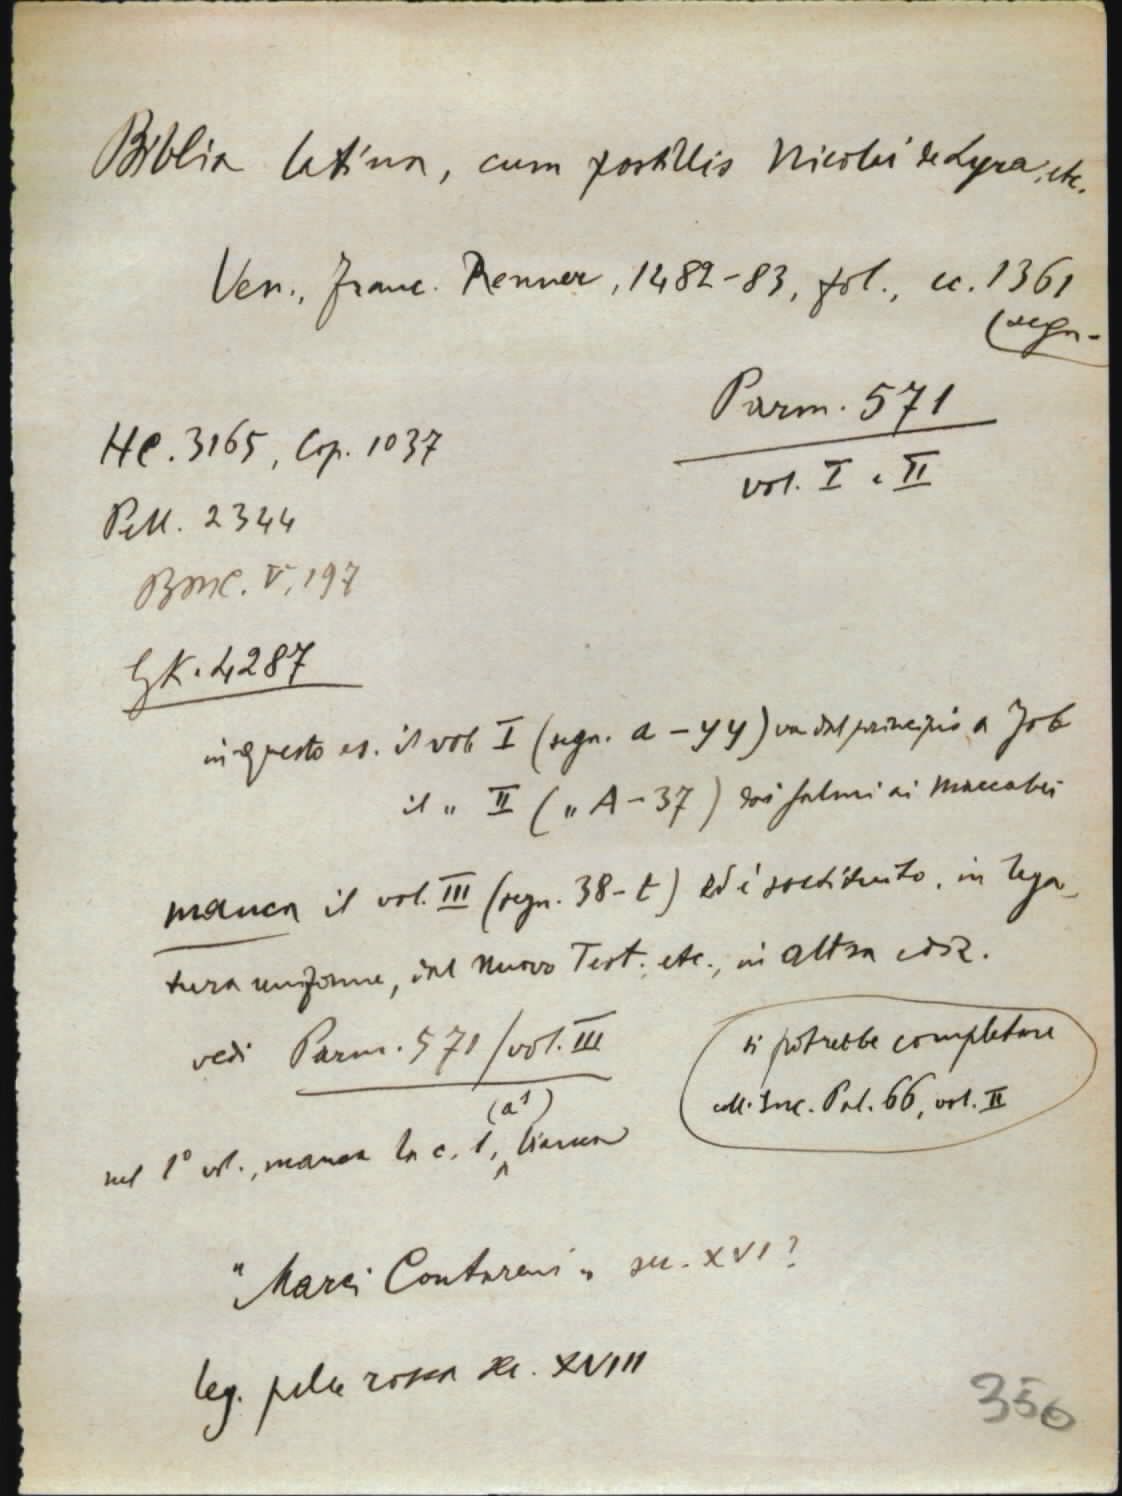 Biblia latina, cum postillis Nicolai de Lyra, etc.
Ven., Franc. Renner, 1482-83, fol., cc. 1361
(segn-
Parm. 571
vol. I e II
HC. 3165, Cop. 1037
Pell. 2344
BMC. V, 197
GK. 4287
in questo es. il vol. I (segn. a - yy) va dal principio a Job
il " II ( " A - 37 ) dai salmi ai Maccabei
manca il vol. III (segn. 38 - t) ed è sostituito, in lega-
tura uniforme, dal Nuovo Test. etc., in altra ediz.
vedi Parm. 571 / vol. III
si potrebbe completare
coll. Inc. Pal. 66, vol. II
(a1)
nel 1° vol., manca la c. 1, bianca
"Marci Contareni" sec. XVI?
leg. pelle rossa sec. XVIII
350